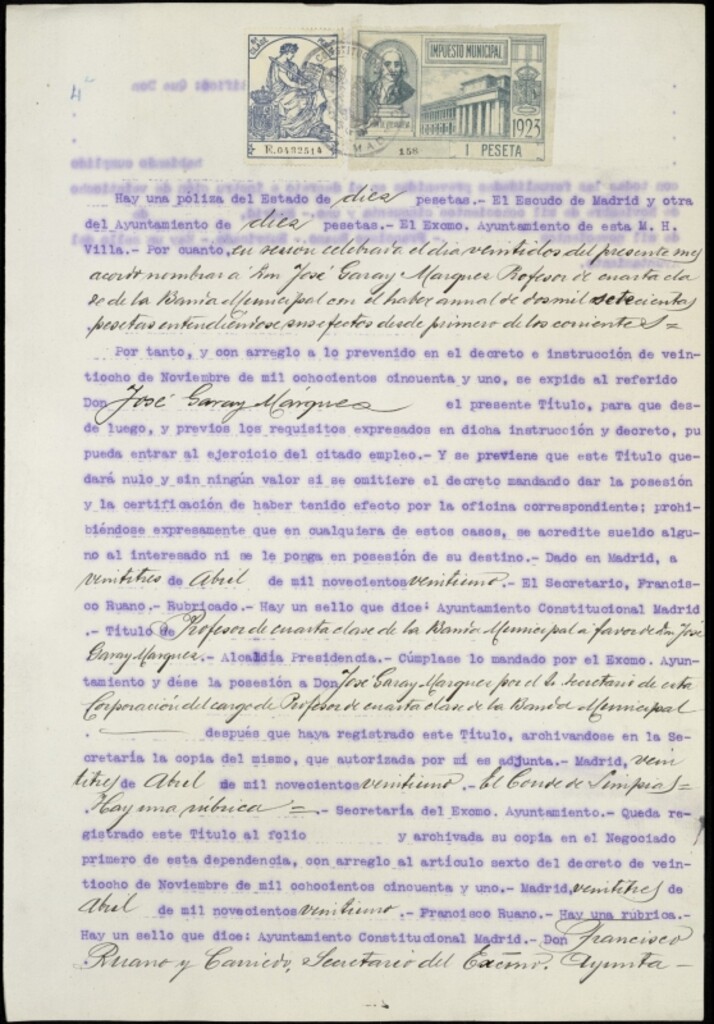 4ª
8ª CLASE
E.0482514
IMPUESTO MUNICIPAL
1923
158 1 PESETA
Hay una póliza del Estado de diez pesetas.- El Escudo de Madrid y otra
del Ayuntamiento de diez pesetas.- El Exomo. Ayuntamiento de esta M. H.
Villa.- Por cuanto, en sesion celebrada el dia veintidos del presente mes
acordó nombrar a Don José Garay Marques Profesor de cuarta cla
se de la Banda Municipal con el haber annal de dos mil setecientas
pesetas entendiéndose sus efectos desde primero de los corrientes =
Por tanto, y con arreglo a lo prevenido en el decreto e instrucción de vein-
tiocho de Noviembre de mil ochocientos cincuenta y uno, se expide al referido
Don José Garay Márques el presente Título, para que des-
de luego, y previos los requisitos expresados en dicha instrucción y decreto, pu
pueda entrar al ejercicio del citado empleo.- Y se previene que este Título que-
dará nulo y sin ningún valor si se omitiere el decreto mandando dar la posesión
y la certificación de haber tenido efecto por la oficina correspondiente; prohi-
biéndose expresamente que en cualquiera de estos casos, se acredite sueldo algu-
no al interesado ni se le ponga en posesión de su destino.- Dado en Madrid, a
veintitres de Abril de mil novecientos veintiuno.- El Secretario, Francis-
co Ruano.- Rubricado.- Hay un sello que dice: Ayuntamiento Constitucional Madrid
.- Título de Profesor de cuarta clase de la Banda Municipal a favor de Don José
Garay Marques.- Alcaldia Presidencia.- Cúmplase lo mandado por el Exomo. Ayun-
tamiento y dése la posesión a Don José Garay Marques por el Sr. Secretario de esta
Corporación del cargo de Profesor de cuarta clase de la Banda Municipal
después que haya registrado este Título, archivandose en la Se-
cretaría la copia del mismo, que autorizada por mi es adjunta.- Madrid, vein
titres de Abril de mil novecientos veintiuno.- El Conde de Limpias =
Hay una rúbrica =.- Secretaría del Exomo. Ayuntamiento.- Queda re-
gistrado este Título al folio y archivada su copia en el Negociado
primero de esta dependencia, con arreglo al artículo sexto del decreto de vein-
tiocho de Noviembre de mil ochocientos cincuenta y uno.- Madrid, veintitres de
Abril de mil novecientos veintiuno.- Francisco Ruano.- Hay una rubrica.-
Hay un sello que dice: Ayuntamiento Constitucional Madrid.- Don Francisco
Ruano y Carriedo, Secretario del Excmo. Ayunta-